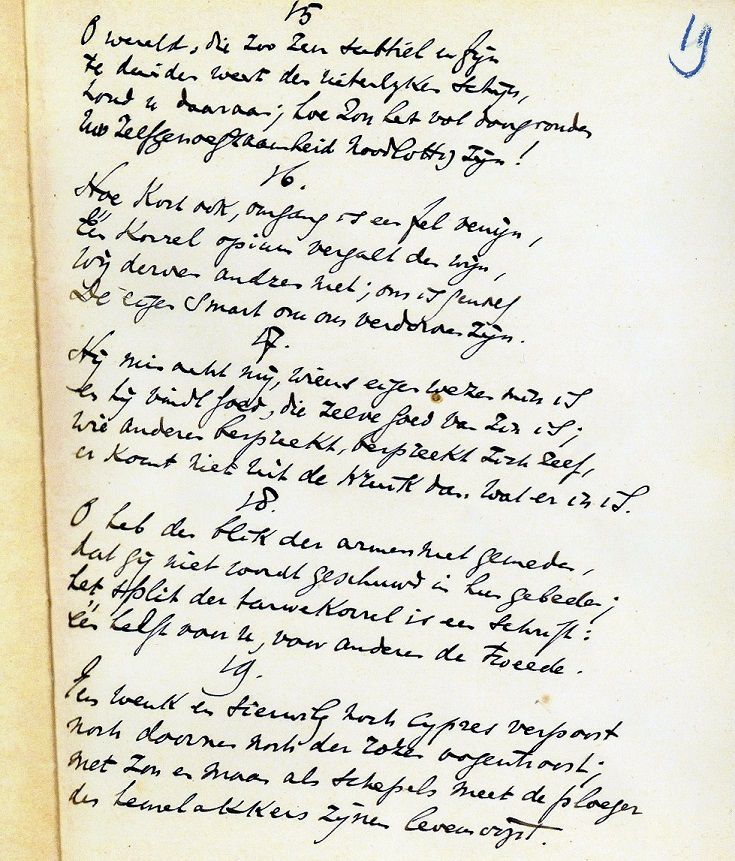 15
19
O wereld, die zoo zeer subtiel en fijn
te duiden weet den uiterlijken schijn,
houd u daaraan; hoe zou het vol doorgronden
Uws zelfgenoegzaamheid noodlottig zijn!
16.
Hoe kort ook, omgang is een fel venijn,
Eén korrel opium vergalt den wijn,
Wij derven andren niet; ons is genoeg
De eigen smart om ons verdorven zijn.
17.
Hij minacht mij, wiens eigen wezen min is
en hij vindt goed, die zelve goed van zin is;
wie anderen bespreekt, bespreekt zich zelf,
er komt niet uit de kruik dan wat er in is.
18.
O heb den blik der armen niet gemeden,
dat gij niet wordt geschuwd in hun gebeden;
het split der tarwekorrel is een schrift:
één helft voor u, voor anderen de tweede.
19.
Een wenk en sierwilg noch cypres verpoost
noch doornen noch der rozen oogentroost;
met zon en maan als schepels meet de ploeger
der hemelakkers zijnen levensoogst.